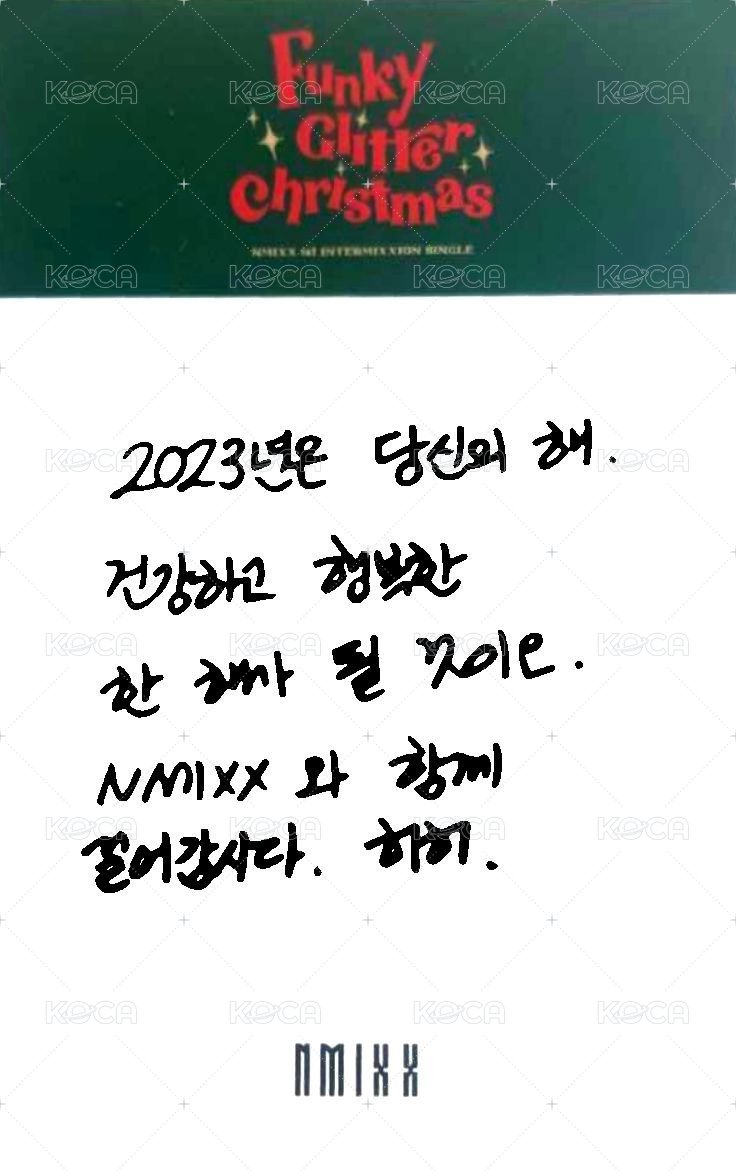 Funky
Glitter
Christmas
NMIXX 1st INTERMIXXION SINGLE
2023년은 당신의 해.
건강하고 행복한
한 해가 될 것이오.
NMIXX 와 함께
걸어갑시다. 히히.
NMIXX
KOCA